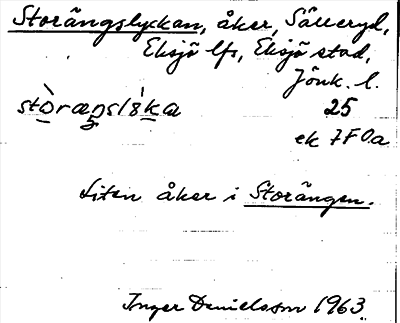 Storängslyckan, åker, Sälleryd,
Eksjö lfs, Eksjö stad,
Jönk. l.
25
ek 7F0a
Liten åker i Storängen.
Inger Danielsson 1963